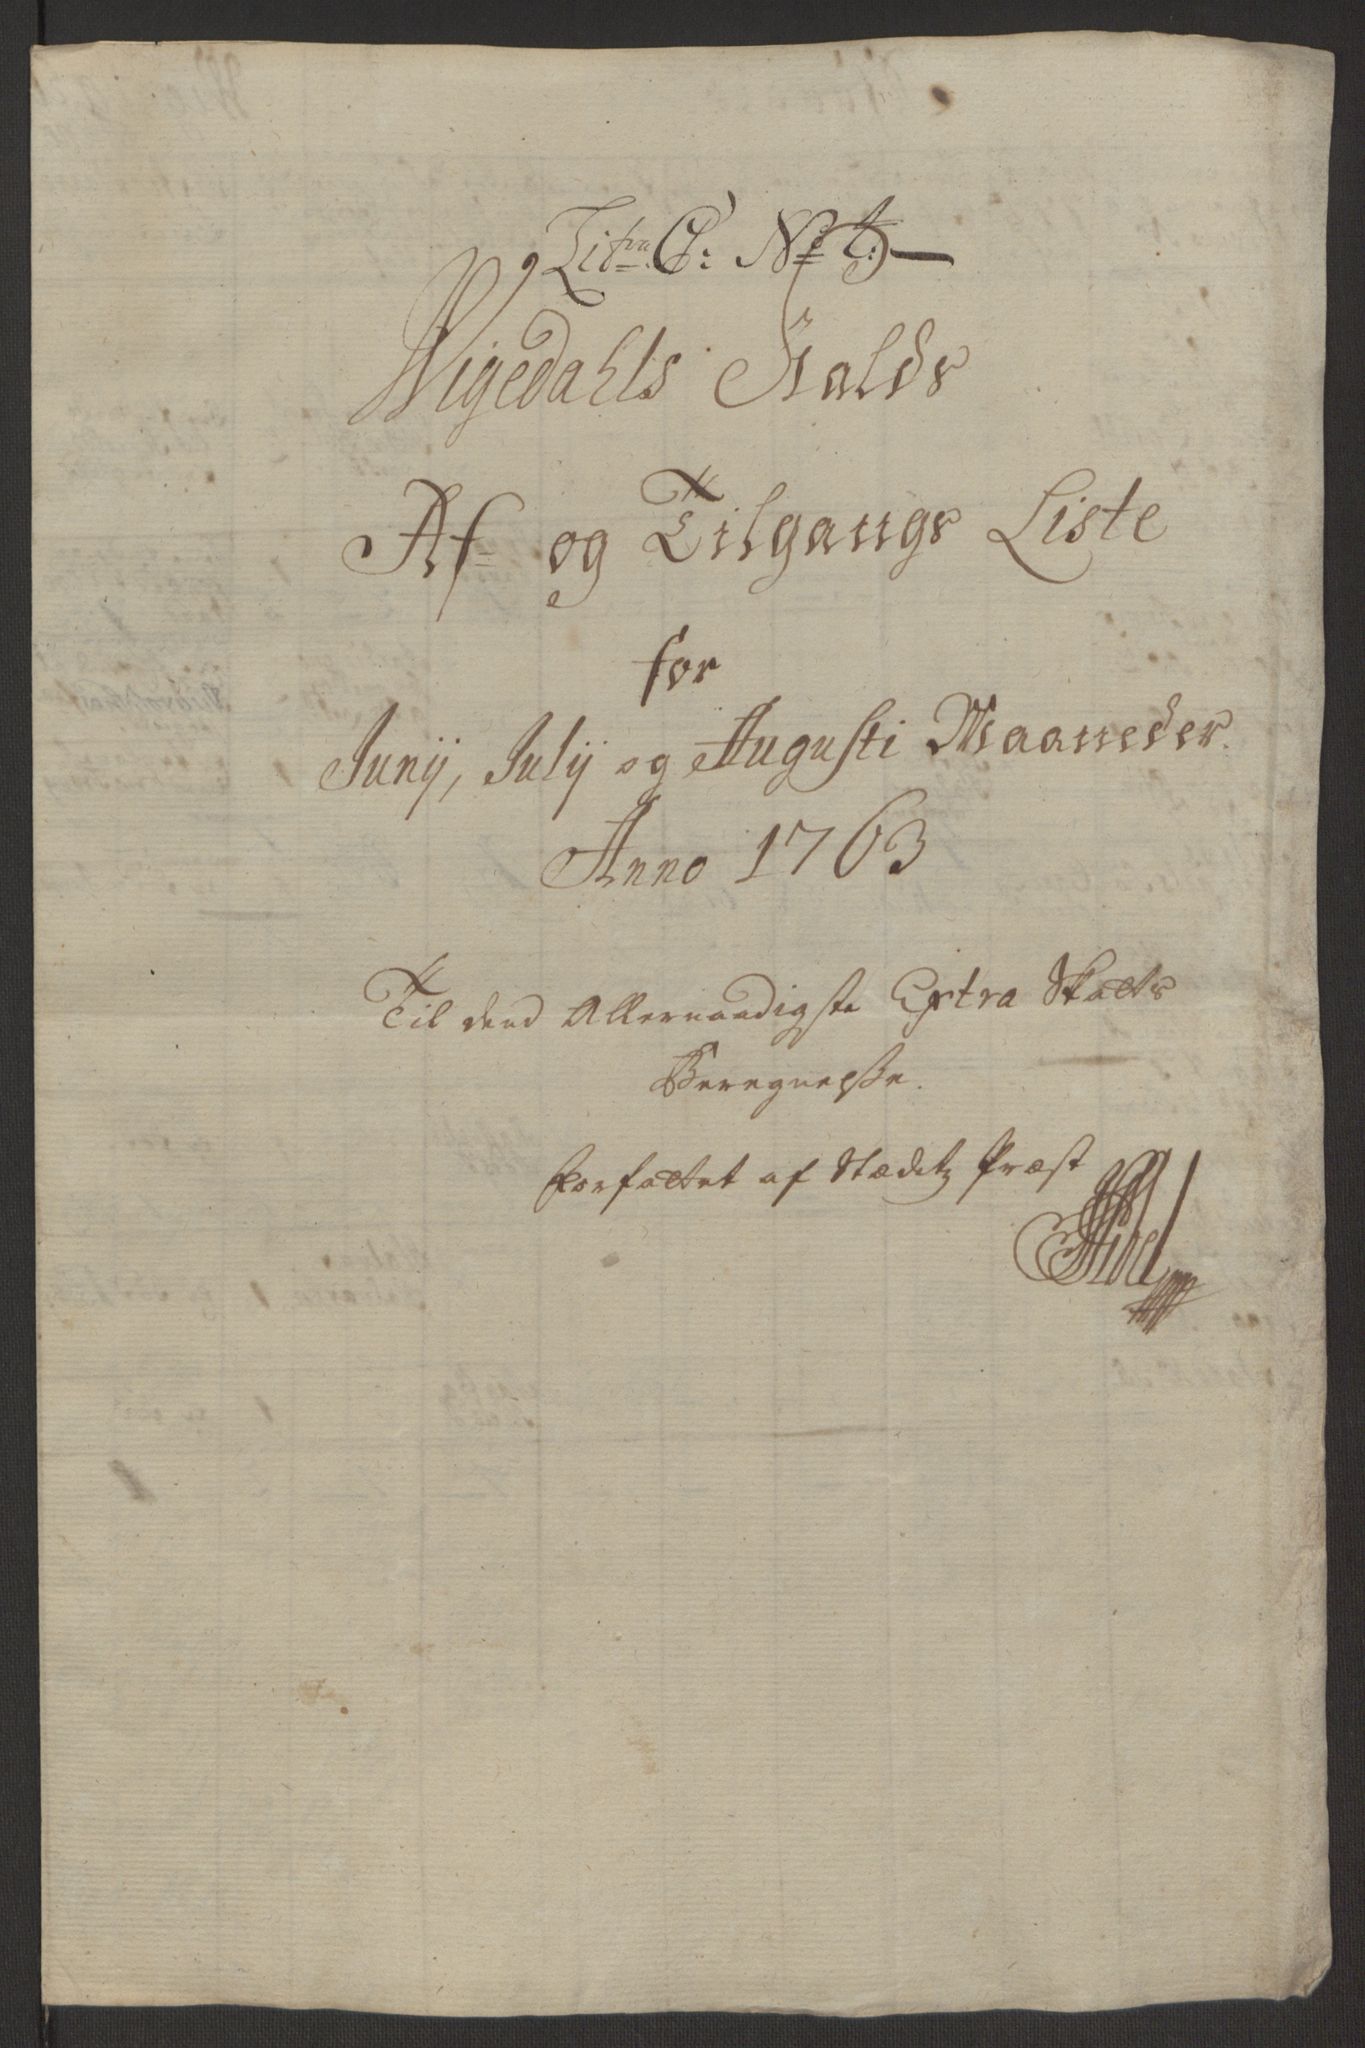 Litra C: No 4:
Vigedahls Gialds
Af- og Tilgangs Liste
for
Junij, Julij og Augusti Maaneder.
Anno 1763
Til dend Allernaadigste Extra Skatts
Beregnelse.
Forfattet af Stædetz Præst